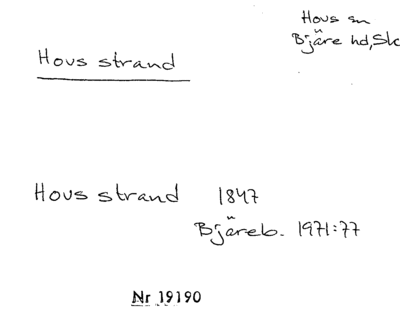 Hovs sn
Bjäre hd, Sk
Hovs strand
Hovs strand 1847
Bjäreb. 1971:77
Nr 19190